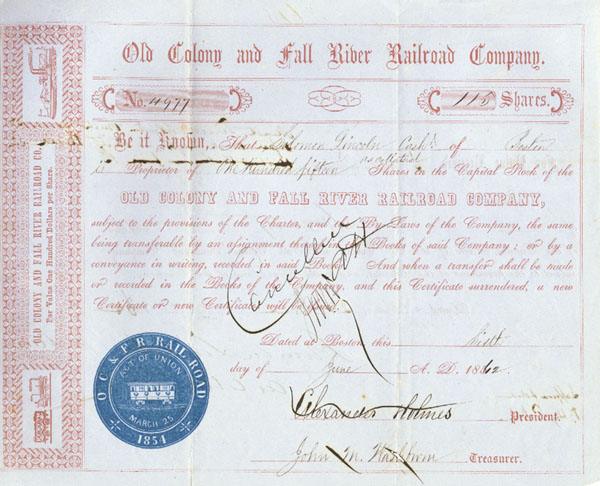 Old Colony and Fall River Railroad Company.
No. 4977 115 Shares.
Be it Known, That Solomon Lincoln Cash.r of Boston
is Proprietor of One Hundred fifteen Shares in the Capital Stock of the
as collateral
OLD COLONY AND FALL RIVER RAILROAD COMPANY,
subject to the provisions of the Charter, and the By-Laws of the Company, the same
being transferable by an assignment thereof in the Books of said Company; or by a
conveyance in writing, recorded in said Books. And when a transfer shall be made
or recorded in the Books of the Company, and this Certificate surrendered, a new
Certificate or new Certificates will be issued.
Cancelled
Dated at Boston this first
day of June A. D. 1862
Alexander Holmes President.
John M. Washburn Treasurer.
OLD COLONY AND FALL RIVER RAILROAD CO.
Par Value One Hundred Dollars per Share.
O. C. & F. R. RAIL-ROAD
ACT OF UNION
MARCH 25
1854